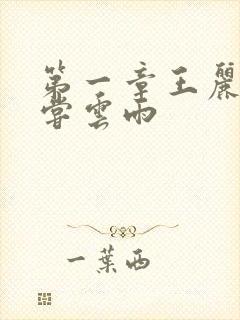 第一章王麗
嘗雲雨
一葉西